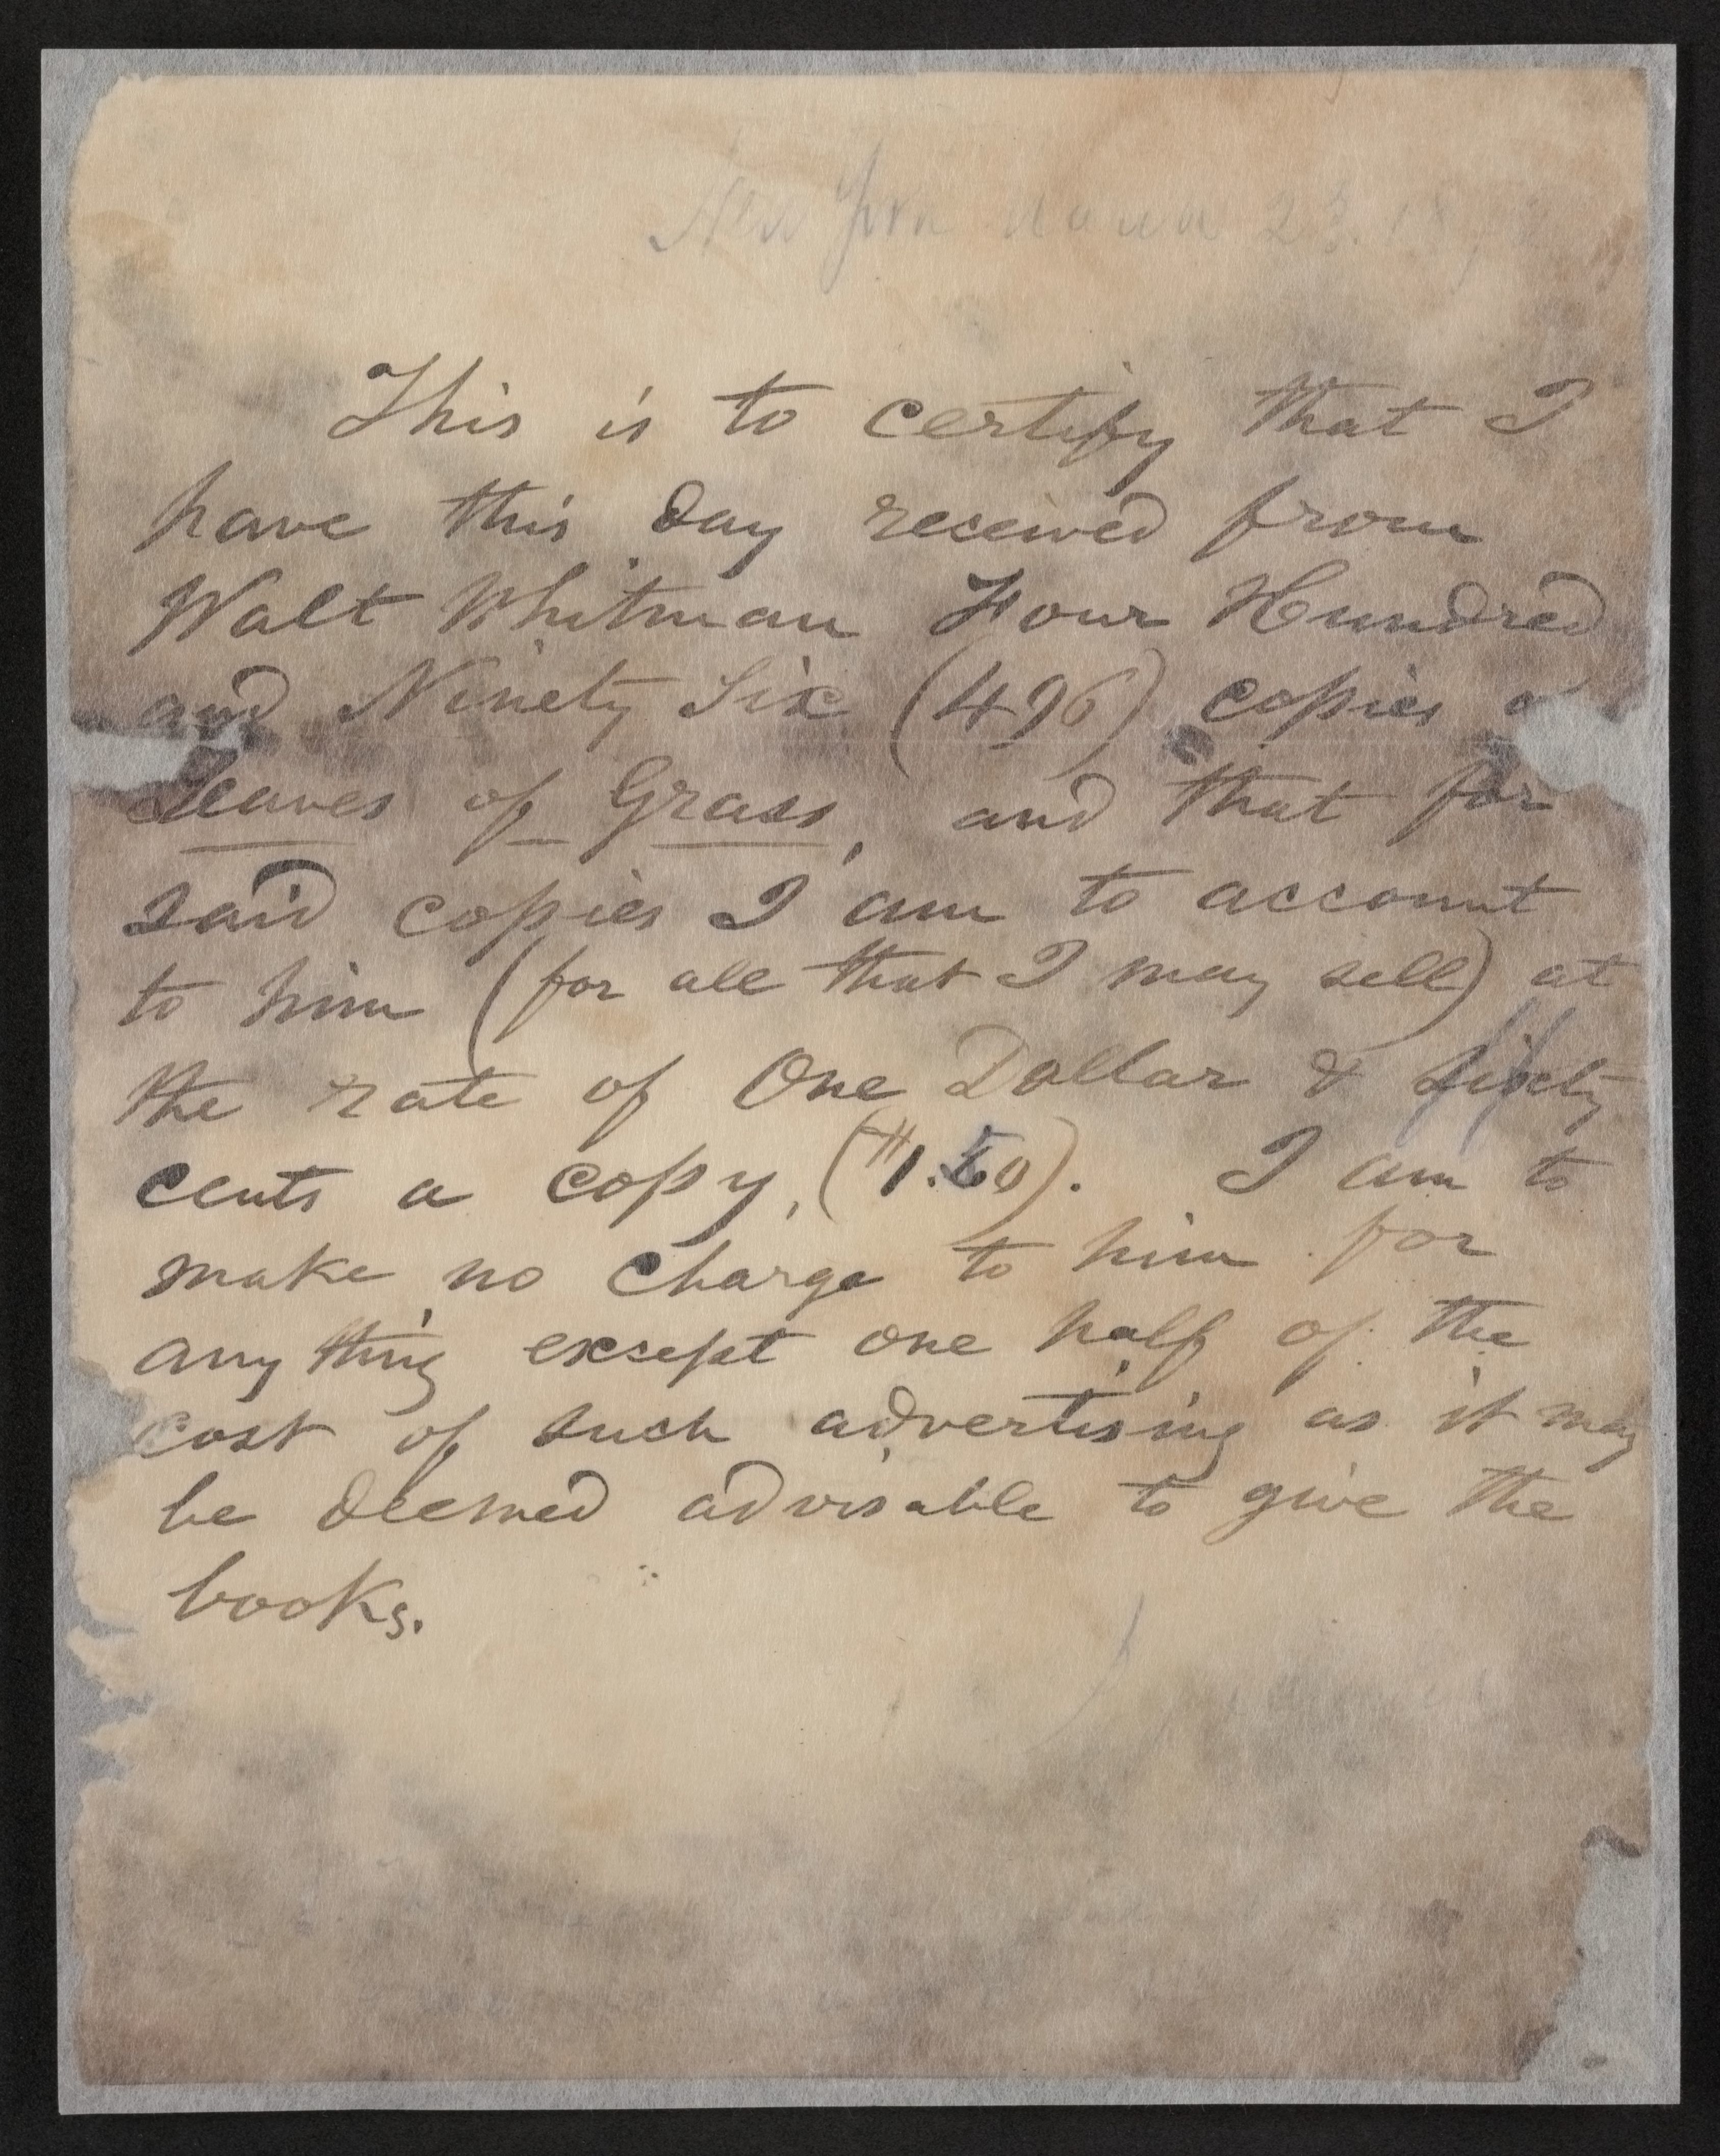 New York March 23. 187
This is to certify that I
have this day received from
Walt Whitman Four Hundred
and Ninety Six (496) copies
Leaves of Grass, and that for
said copies I am to account
to him (for all that I may sell) at
the rate of One Dollar &
cents a copy, ($1.50). I am to
make no charge to him for
any thing except one half of the
cost of such advertising as it may
be deemed advisable to give the
books.